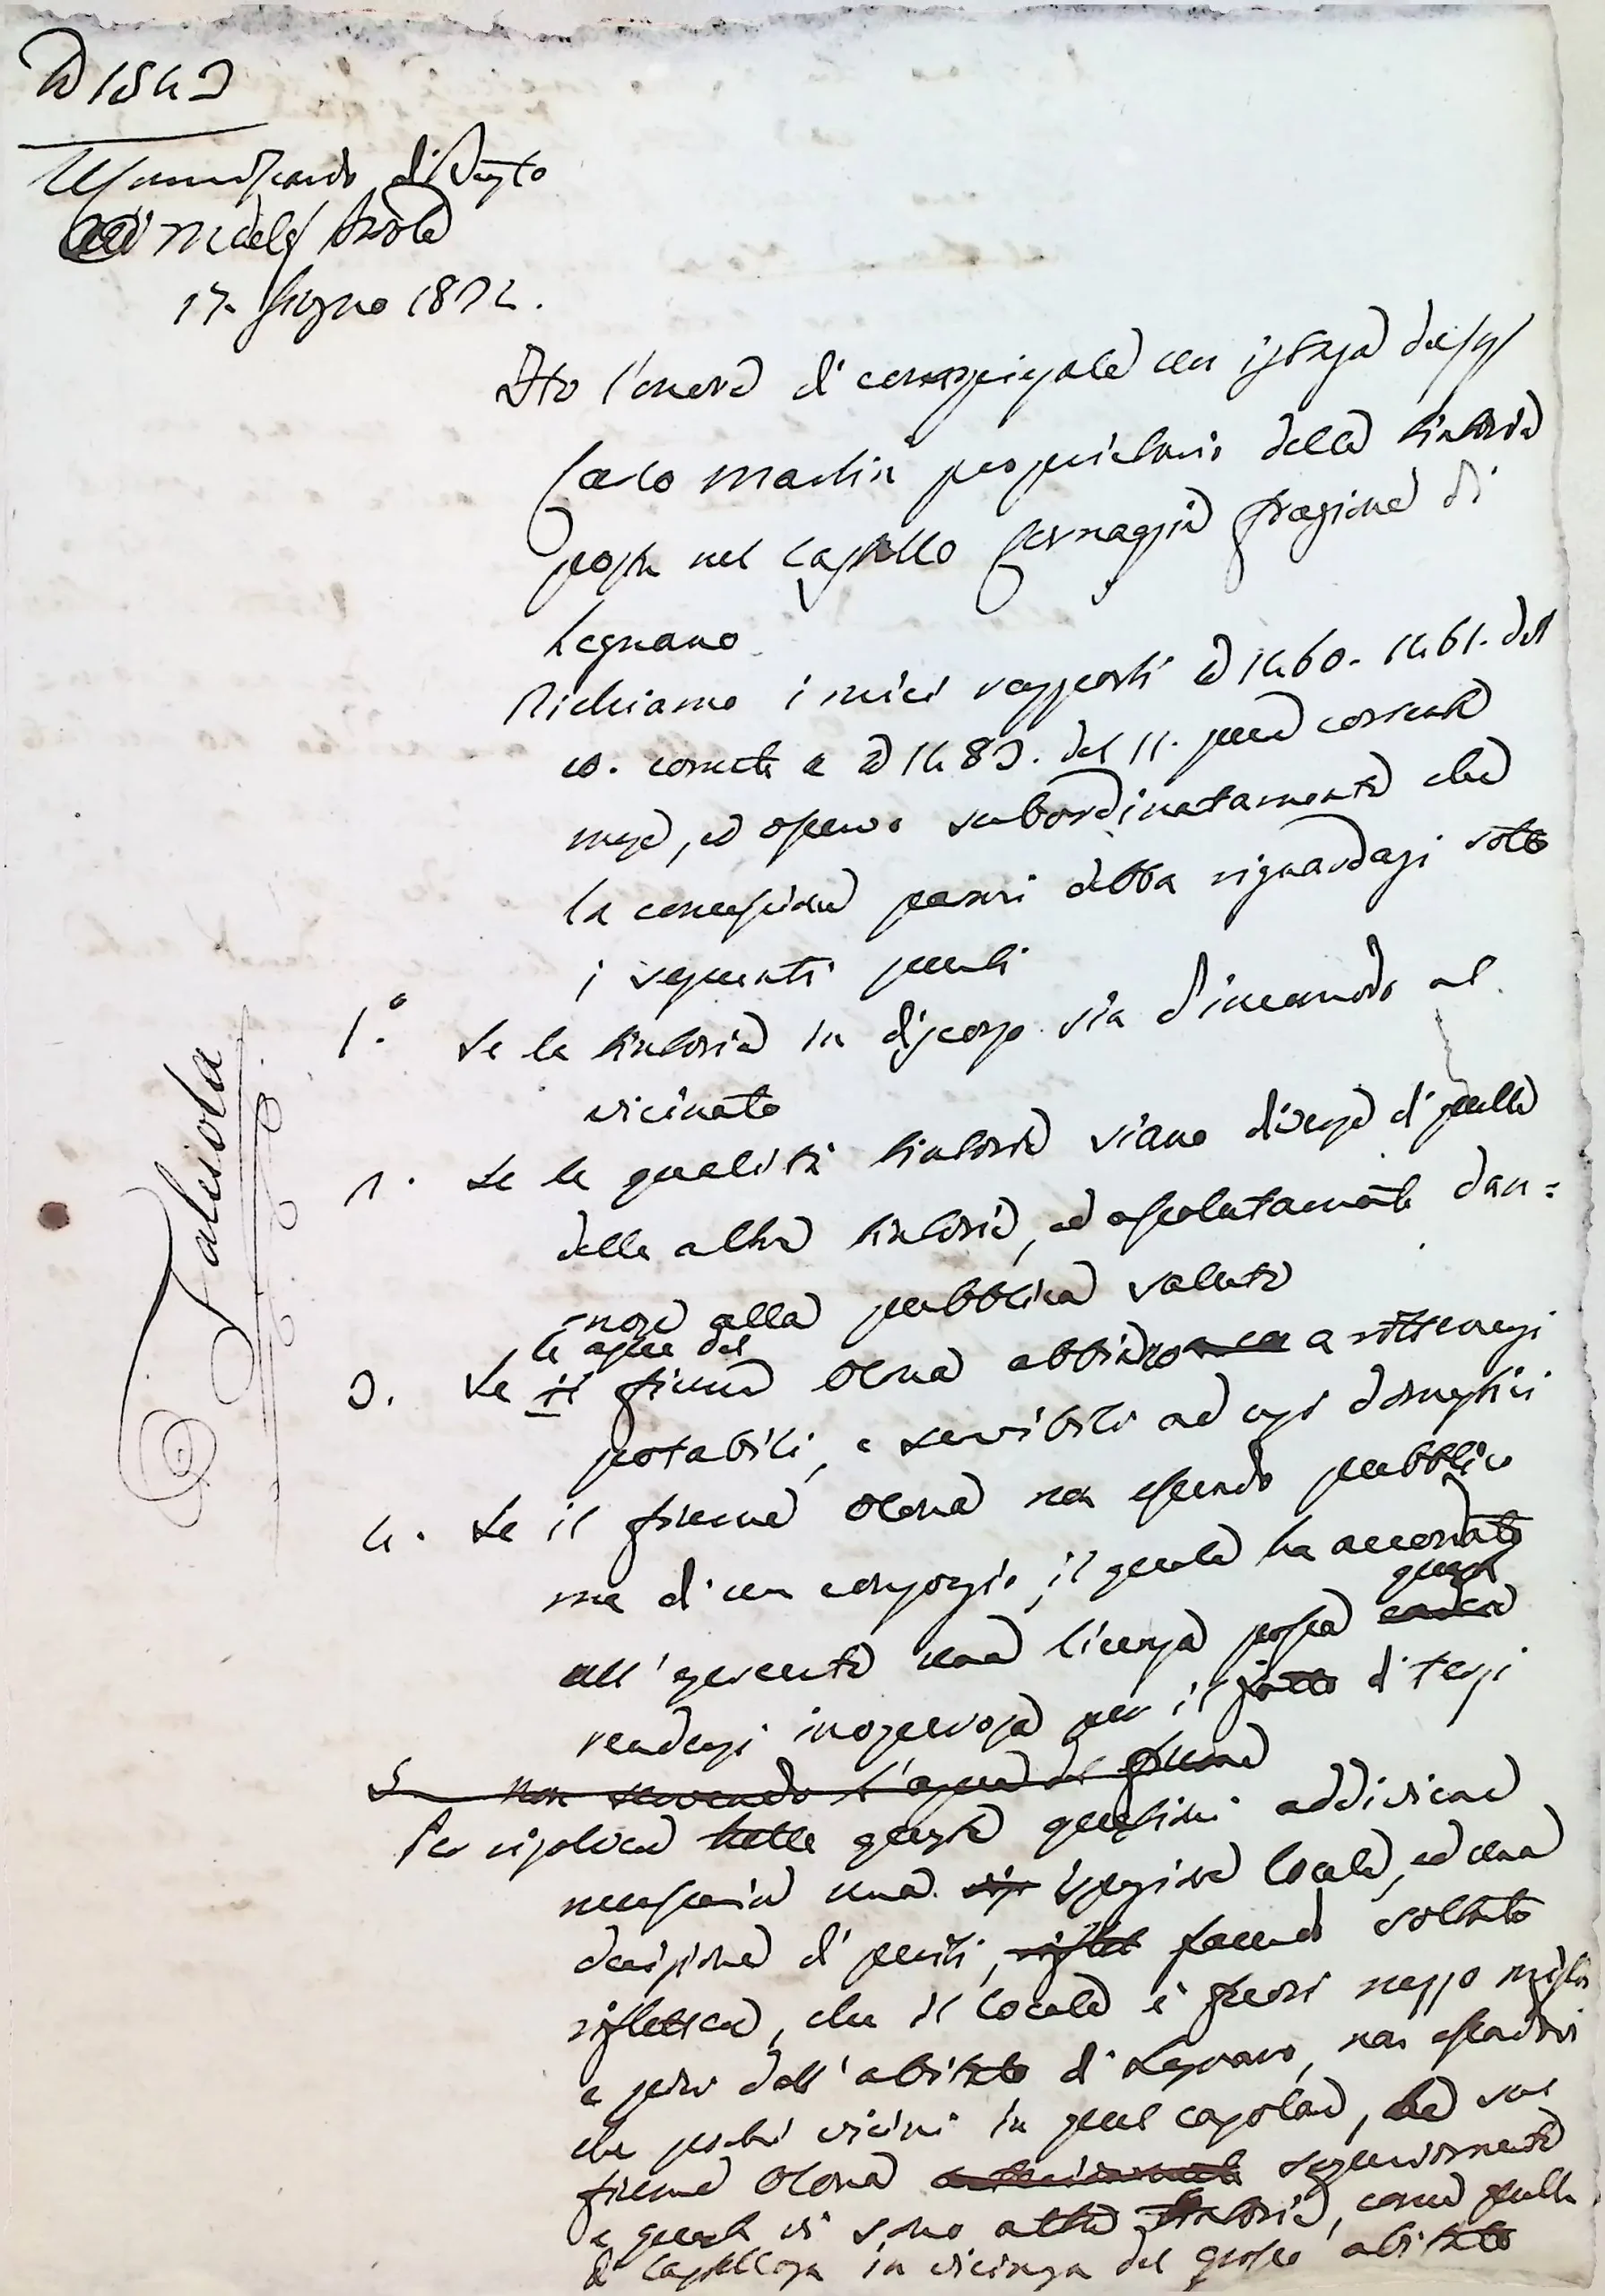 N 1543
di Busto
17. Giugno 1872.
Ho l'onore di una istanza del Sig
Carlo Martin proprietario della tintoria
posta nel Castello frazione di
Legnano
Richiamo i miei rapporti N 1460. 1461. del
10. corrente e N 1483. del 11. pure corrente
mese, ed osservo subordinatamente che
la concessione parmi debba riguardarsi sotto
i seguenti punti
1.° Se la tintoria in discorso sia d'incomodo al
vicinato
2. Se le qualità tintorie siano diverse di quelle
delle altre tintorie, ed assolutamente dan=
nose alla pubblica salute
le acque del
3. Se il fiume Olona abbiano a ritenersi
potabili, e servibili ad usi domestici
4. Se il fiume Olona non essendo pubblico
ma d'un consorzio, il quale ha accordato
questa
all'esercente una licenza possa
rendersi inoperosa per il fatto di terzi
5 non servendo l'acqua del fiume
Per risolvere tutte queste questioni addiviene
necessaria una ispezione locale, ed una
decisione di periti, facendo soltanto
riflettere, che il locale è fuori mezzo miglio
e più dall'abitato di Legnano, non essendovi
che pochi vicini in quel casolare, che sul
fiume Olona superiormente
a questa vi sono altre tintorie, come quella
di Castellanza in vicinanza del grosso abitato
Salesota